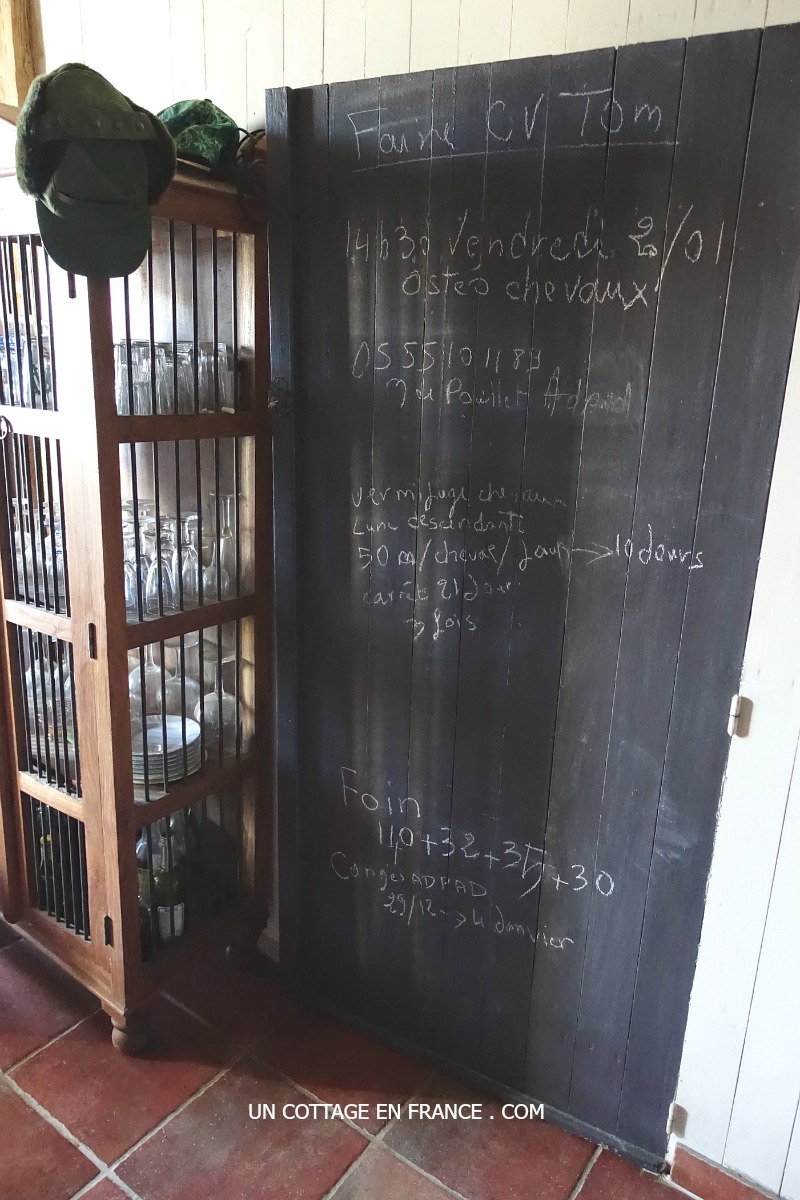 Faire CV Tom
14h30 Vendredi 2/01
Osteo chevaux
05 55 10 11 83
Pouillet
vermifuge chevaux
Lune descendante
50 m/cheval/jour → 10 Jours
21 Jour
fois
Foin
140+32+35+30
Conges ADPAD
29/12 → 4 Janvier
UN COTTAGE EN FRANCE . COM